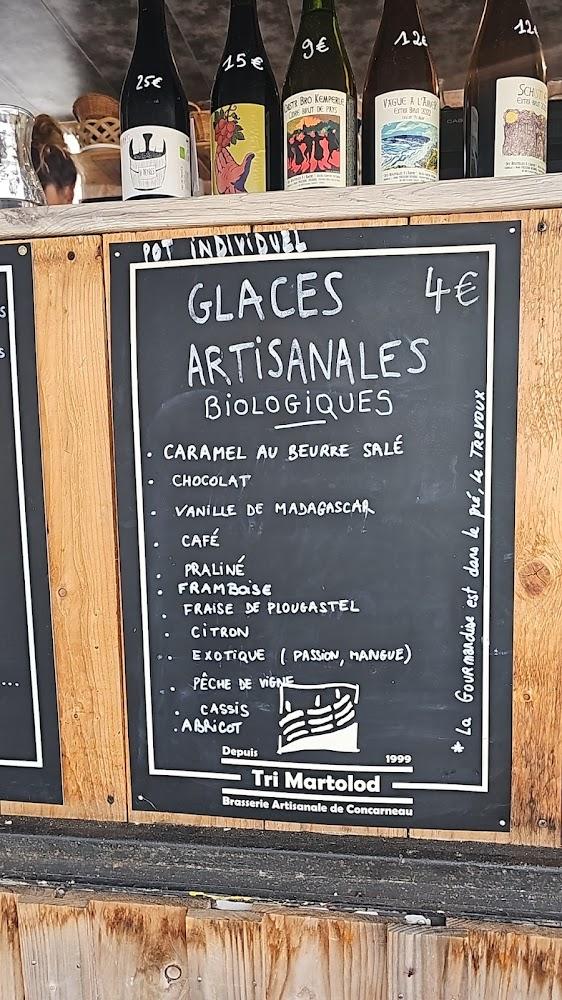 25€
15€
9€
12€
12€
BRO KEMPERLE
CIDRE BRUT DE PAYS
VAGUE A L'AME
EXTRA BRUT
POT INDIVIDUEL
GLACES 4€
ARTISANALES
BIOLOGIQUES
• CARAMEL AU BEURRE SALÉ
• CHOCOLAT
• VANILLE DE MADAGASCAR
• CAFÉ
• PRALINÉ
• FRAMBOISE
• FRAISE DE PLOUGASTEL
• CITRON
• EXOTIQUE ( PASSION, MANGUE)
• PÊCHE DE VIGNE
• CASSIS
• ABRICOT
* La Gourmandise est dans le pré, Le TREVOUX
Depuis 1999
Tri Martolod
Brasserie Artisanale de Concarneau